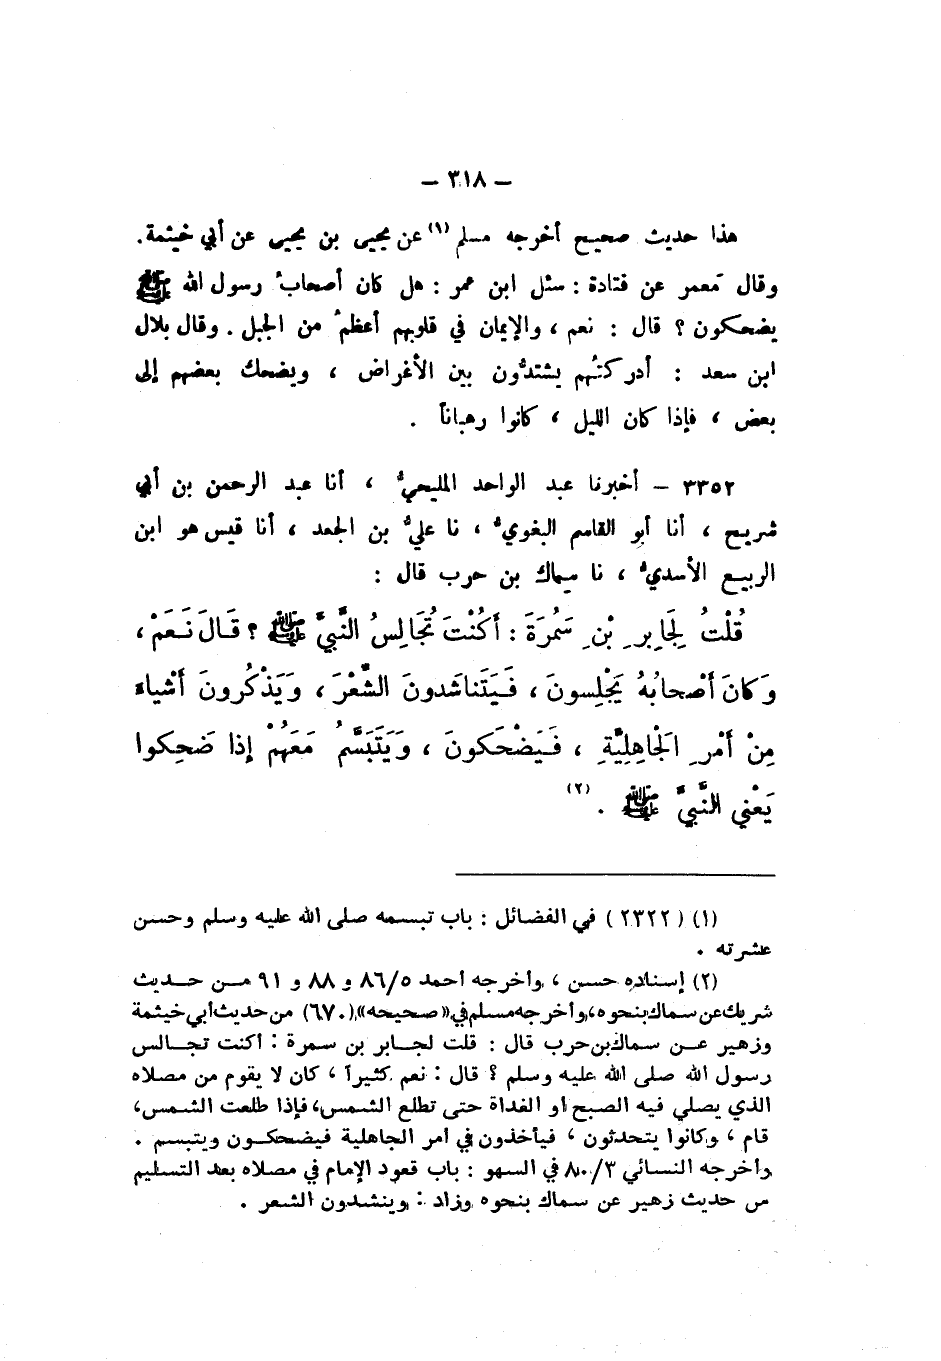 – ٣١٨ –
هذا حديث صحيح أخرجه مسلم (١) عن يحيى بن يحيى عن أبي خيثمة.
وقال مَعمر عن قتادة : سئل ابن عمر : هل كان أصحابُ رسول الله ﷺ
يضحكون ؟ قال : نعم ، والإيمان في قلوبهم أعظمُ من الجبل . وقال بلال
ابن سعد : أدركتُهم يشتدُّون بين الأغراض ، ويضحك بعضهم إلى
بعض ، فإذا كان الليل ، كانوا رهباناً .
٣٣٥٢ – أخبرنا عبد الواحد المليحيُّ ، أنا عبد الرحمن بن أبي
شريح ، أنا أبو القاسم البغويُّ ، نا عليُّ بن الجعد ، أنا قيس هو ابن
الربيع الأسديُّ ، نا سِماك بن حرب قال :
قُلْتُ لِجَابِرِ بْنِ سَمُرَةَ : أَكُنْتَ تُجَالِسُ النَّبِيَّ ﷺ ؟ قَالَ نَعَمْ ،
وَكَانَ أَصْحابُهُ يَجْلِسونَ ، فَيَتَناشَدونَ الشَّعْرَ ، وَيَذْكُرونَ أَشْياءَ
مِنْ أَمْرِ الجَاهِلِيَّةِ ، فَيَضْحَكونَ ، وَيَتَبَسَّمُ مَعَهُمْ إذا ضَحِكوا
يَعْني النَّبِيَّ ﷺ . (٢)
(١) (٢٣٢٢) في الفضائل : باب تبسمه صلى الله عليه وسلم وحسن
عشرته .
(٢) إسناده حسن ، وأخرجه أحمد ٨٦/٥ و ٨٨ و ٩١ من حديث
شريك عن سماك بنحوه ، وأخرجه مسلم في «صحيحه» (٦٧٠) من حديث أبي خيثمة
وزهير عن سماك بن حرب قال : قلت لجابر بن سمرة : أكنت تجالس
رسول الله صلى الله عليه وسلم ؟ قال : نعم كثيراً ، كان لا يقوم من مصلاه
الذي يصلي فيه الصبح أو الغداة حتى تطلع الشمس، فإذا طلعت الشمس،
قام ، وكانوا يتحدثون ، فيأخذون في أمر الجاهلية فيضحكون ويتبسم .
وأخرجه النسائي ٨٠/٣ في السهو : باب قعود الإمام في مصلاه بعد التسليم
من حديث زهير عن سماك بنحوه وزاد : وينشدون الشعر .